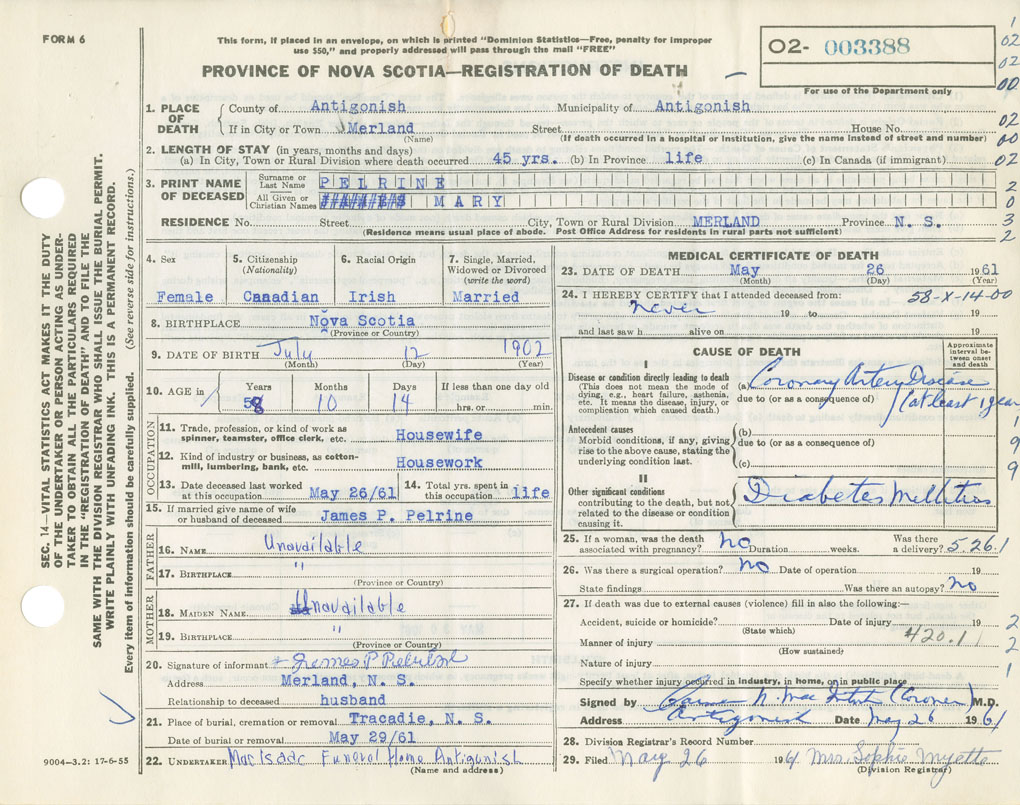 FORM 6
This form, if placed in an envelope, on which is printed "Dominion Statistics—Free, penalty for improper
use $50," and properly addressed will pass through the mail "FREE"
PROVINCE OF NOVA SCOTIA—REGISTRATION OF DEATH
02- 003388
For use of the Department only
1
02
02
00
02
00
02
2
0
3
2
SEC. 14—VITAL STATISTICS ACT MAKES IT THE DUTY
OF THE UNDERTAKER OR PERSON ACTING AS UNDER-
TAKER TO OBTAIN ALL THE PARTICULARS REQUIRED
IN THE "REGISTRATION OF DEATH" AND TO FILE THE
SAME WITH THE DIVISION REGISTRAR WHO SHALL ISSUE THE BURIAL PERMIT.
WRITE PLAINLY WITH UNFADING INK. THIS IS A PERMANENT RECORD.
Every item of information should be carefully supplied. (See reverse side for instructions.)
1. PLACE OF DEATH
County of Antigonish Municipality of Antigonish
If in City or Town Merland Street House No.
(Name) (If death occurred in a hospital or institution, give the name instead of street and number)
2. LENGTH OF STAY (in years, months and days)
(a) In City, Town or Rural Division where death occurred 45 yrs. (b) In Province life (c) In Canada (if immigrant)
3. PRINT NAME OF DECEASED
Surname or Last Name PELRINE
All Given or Christian Names MARY
RESIDENCE No. Street City, Town or Rural Division MERLAND Province N. S.
(Residence means usual place of abode. Post Office Address for residents in rural parts not sufficient)
4. Sex
Female
5. Citizenship
(Nationality)
Canadian
6. Racial Origin
Irish
7. Single, Married,
Widowed or Divorced
(write the word)
Married
8. BIRTHPLACE Nova Scotia
(Province or Country)
9. DATE OF BIRTH July 12 1902
(Month) (Day) (Year)
10. AGE in
Years Months Days If less than one day old
58 10 14 hrs. or min.
OCCUPATION
11. Trade, profession, or kind of work as
spinner, teamster, office clerk, etc. Housewife
12. Kind of industry or business, as cotton-
mill, lumbering, bank, etc. Housework
13. Date deceased last worked
at this occupation May 26/61
14. Total yrs. spent in
this occupation life
15. If married give name of wife
or husband of deceased James P. Pelrine
FATHER
16. NAME Unavailable
17. BIRTHPLACE "
(Province or Country)
MOTHER
18. MAIDEN NAME Unavailable
19. BIRTHPLACE "
(Province or Country)
20. Signature of informant James P Pelrine
Address Merland, N. S.
Relationship to deceased husband
21. Place of burial, cremation or removal Tracadie, N. S.
Date of burial or removal May 29/61
22. UNDERTAKER MacIsaac Funeral Home Antigonish
(Name and address)
9004—3.2: 17-6-55
MEDICAL CERTIFICATE OF DEATH
23. DATE OF DEATH May 26 1961
(Month) (Day) (Year)
24. I HEREBY CERTIFY that I attended deceased from: 58-X-14-00
never 19 to 19
and last saw h alive on 19
CAUSE OF DEATH
Approximate
interval be-
tween onset
and death
I
Disease or condition directly leading to death
(This does not mean the mode of
dying, e.g., heart failure, asthenia,
etc. It means the disease, injury, or
complication which caused death.)
(a) Coronary Artery Disease
due to (or as a consequence of) (at least 1 year
Antecedent causes
Morbid conditions, if any, giving
rise to the above cause, stating the
underlying condition last.
(b)
due to (or as a consequence of)
(c)
1
9
9
II
Other significant conditions
contributing to the death, but not
related to the disease or condition
causing it.
Diabetes Mellitus
25. If a woman, was the death
associated with pregnancy? no Duration weeks. Was there
a delivery? 5.26.1
26. Was there a surgical operation? no Date of operation 19
State findings Was there an autopsy? no
27. If death was due to external causes (violence) fill in also the following:—
Accident, suicide or homicide? Date of injury 19
(State which)
Manner of injury 420.1
(How sustained)
Nature of injury
2
2
1
Specify whether injury occurred in industry, in home, or in public place
Signed by (Coroner) M.D.
Address Antigonish Date May 26 1961
28. Division Registrar's Record Number
29. Filed May 26 196 Mrs. Sophie Myette
(Division Registrar)